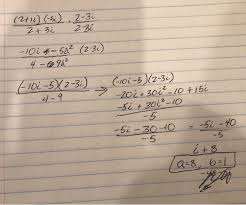 (2+i) (-5i) · 2-3i
2+3i 2-3i
-10i - 5i² (2-3i)
4 - 9i²
(-10i-5)(2-3i) → (-10i-5)(2-3i)
4-9
-20i+30i²-10 +15i
-5i+30i²-10
-5
-5i-30-10 = -5i-40
-5 -5
i+8
a=8, b=1